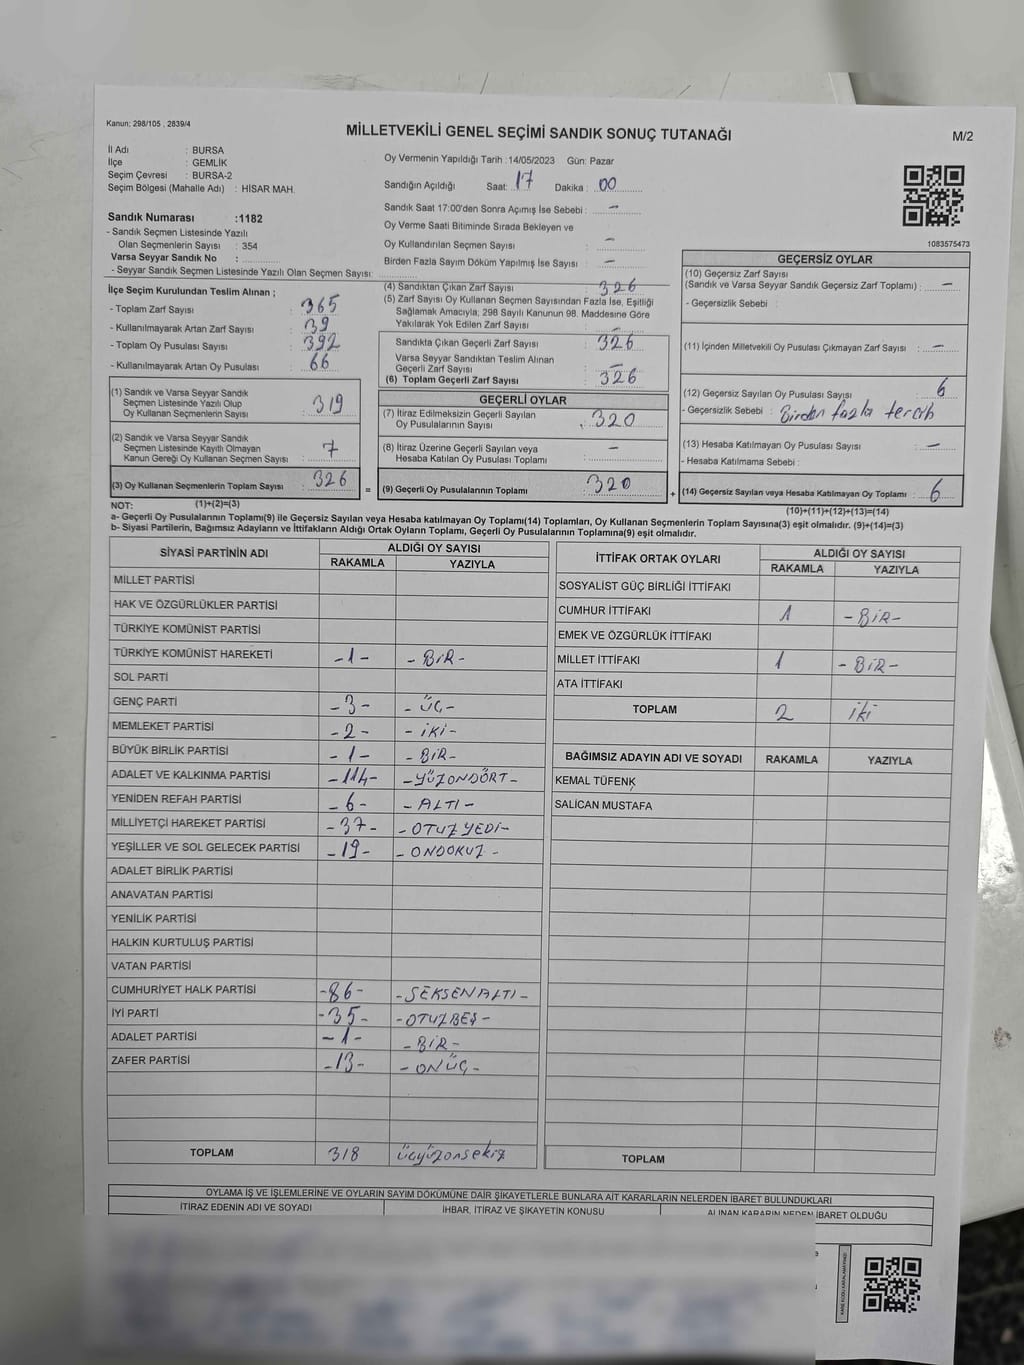 Kanun; 298/105 , 2839/4
MİLLETVEKİLİ GENEL SEÇİMİ SANDIK SONUÇ TUTANAĞI
M/2
İl Adı : BURSA
İlçe : GEMLİK
Seçim Çevresi : BURSA-2
Seçim Bölgesi (Mahalle Adı) : HİSAR MAH.
Sandık Numarası :1182
- Sandık Seçmen Listesinde Yazılı
Olan Seçmenlerin Sayısı : 354
Varsa Seyyar Sandık No :
- Seyyar Sandık Seçmen Listesinde Yazılı Olan Seçmen Sayısı:
Oy Vermenin Yapıldığı Tarih :14/05/2023 Gün: Pazar
Sandığın Açıldığı Saat: 17 Dakika : 00
Sandık Saat 17:00'den Sonra Açımış İse Sebebi : -
Oy Verme Saati Bitiminde Sırada Bekleyen ve
Oy Kullandırılan Seçmen Sayısı : -
Birden Fazla Sayım Döküm Yapılmış İse Sayısı : -
1083575473
İlçe Seçim Kurulundan Teslim Alınan ;
- Toplam Zarf Sayısı : 365
- Kullanılmayarak Artan Zarf Sayısı : 39
- Toplam Oy Pusulası Sayısı : 392
- Kullanılmayarak Artan Oy Pusulası : 66
(1) Sandık ve Varsa Seyyar Sandık
Seçmen Listesinde Yazılı Olup
Oy Kullanan Seçmenlerin Sayısı : 319
(2) Sandık ve Varsa Seyyar Sandık
Seçmen Listesinde Kayıtlı Olmayan
Kanun Gereği Oy Kullanan Seçmen Sayısı : 7
(3) Oy Kullanan Seçmenlerin Toplam Sayısı : 326
(4) Sandıktan Çıkan Zarf Sayısı : 326
(5) Zarf Sayısı Oy Kullanan Seçmen Sayısından Fazla İse, Eşitliği
Sağlamak Amacıyla; 298 Sayılı Kanunun 98. Maddesine Göre
Yakılarak Yok Edilen Zarf Sayısı : -
Sandıkta Çıkan Geçerli Zarf Sayısı : 326
Varsa Seyyar Sandıktan Teslim Alınan
Geçerli Zarf Sayısı : -
(6) Toplam Geçerli Zarf Sayısı : 326
GEÇERLİ OYLAR
(7) İtiraz Edilmeksizin Geçerli Sayılan
Oy Pusulalarının Sayısı : 320
(8) İtiraz Üzerine Geçerli Sayılan veya
Hesaba Katılan Oy Pusulası Toplamı : -
= (9) Geçerli Oy Pusulalarının Toplamı : 320
GEÇERSİZ OYLAR
(10) Geçersiz Zarf Sayısı
(Sandık ve Varsa Seyyar Sandık Geçersiz Zarf Toplamı) : -
- Geçersizlik Sebebi :
(11) İçinden Milletvekili Oy Pusulası Çıkmayan Zarf Sayısı : -
(12) Geçersiz Sayılan Oy Pusulası Sayısı : 6
- Geçersizlik Sebebi : Birden fazla tercih
(13) Hesaba Katılmayan Oy Pusulası Sayısı : -
- Hesaba Katılmama Sebebi :
+ (14) Geçersiz Sayılan veya Hesaba Katılmayan Oy Toplamı : 6
NOT: (1)+(2)=(3)
(10)+(11)+(12)+(13)=(14)
a- Geçerli Oy Pusulalarının Toplamı(9) ile Geçersiz Sayılan veya Hesaba katılmayan Oy Toplamı(14) Toplamları, Oy Kullanan Seçmenlerin Toplam Sayısına(3) eşit olmalıdır. (9)+(14)=(3)
b- Siyasi Partilerin, Bağımsız Adayların ve İttifakların Aldığı Ortak Oyların Toplamı, Geçerli Oy Pusulalarının Toplamına(9) eşit olmalıdır.
SİYASİ PARTİNİN ADI ALDIĞI OY SAYISI
RAKAMLA YAZIYLA
MİLLET PARTİSİ
HAK VE ÖZGÜRLÜKLER PARTİSİ
TÜRKİYE KOMÜNİST PARTİSİ
TÜRKİYE KOMÜNİST HAREKETİ -1- -BİR-
SOL PARTİ
GENÇ PARTİ -3- -ÜÇ-
MEMLEKET PARTİSİ -2- -İKİ-
BÜYÜK BİRLİK PARTİSİ -1- -BİR-
ADALET VE KALKINMA PARTİSİ -114- -YÜZONDÖRT-
YENİDEN REFAH PARTİSİ -6- -ALTI-
MİLLİYETÇİ HAREKET PARTİSİ -37- -OTUZYEDİ-
YEŞİLLER VE SOL GELECEK PARTİSİ -19- -ONDOKUZ-
ADALET BİRLİK PARTİSİ
ANAVATAN PARTİSİ
YENİLİK PARTİSİ
HALKIN KURTULUŞ PARTİSİ
VATAN PARTİSİ
CUMHURİYET HALK PARTİSİ -86- -SEKSENALTI-
İYİ PARTİ -35- -OTUZBEŞ-
ADALET PARTİSİ -1- -BİR-
ZAFER PARTİSİ -13- -ONÜÇ-
TOPLAM 318 üçyüzonsekiz
İTTİFAK ORTAK OYLARI ALDIĞI OY SAYISI
RAKAMLA YAZIYLA
SOSYALİST GÜÇ BİRLİĞİ İTTİFAKI
CUMHUR İTTİFAKI 1 -BİR-
EMEK VE ÖZGÜRLÜK İTTİFAKI
MİLLET İTTİFAKI 1 -BİR-
ATA İTTİFAKI
TOPLAM 2 iki
BAĞIMSIZ ADAYIN ADI VE SOYADI RAKAMLA YAZIYLA
KEMAL TÜFENK
SALİCAN MUSTAFA
TOPLAM
OYLAMA İŞ VE İŞLEMLERİNE VE OYLARIN SAYIM DÖKÜMÜNE DAİR ŞİKAYETLERLE BUNLARA AİT KARARLARIN NELERDEN İBARET BULUNDUKLARI
İTİRAZ EDENİN ADI VE SOYADI İHBAR, İTİRAZ VE ŞİKAYETİN KONUSU ALINAN KARARIN NEDEN İBARET OLDUĞU